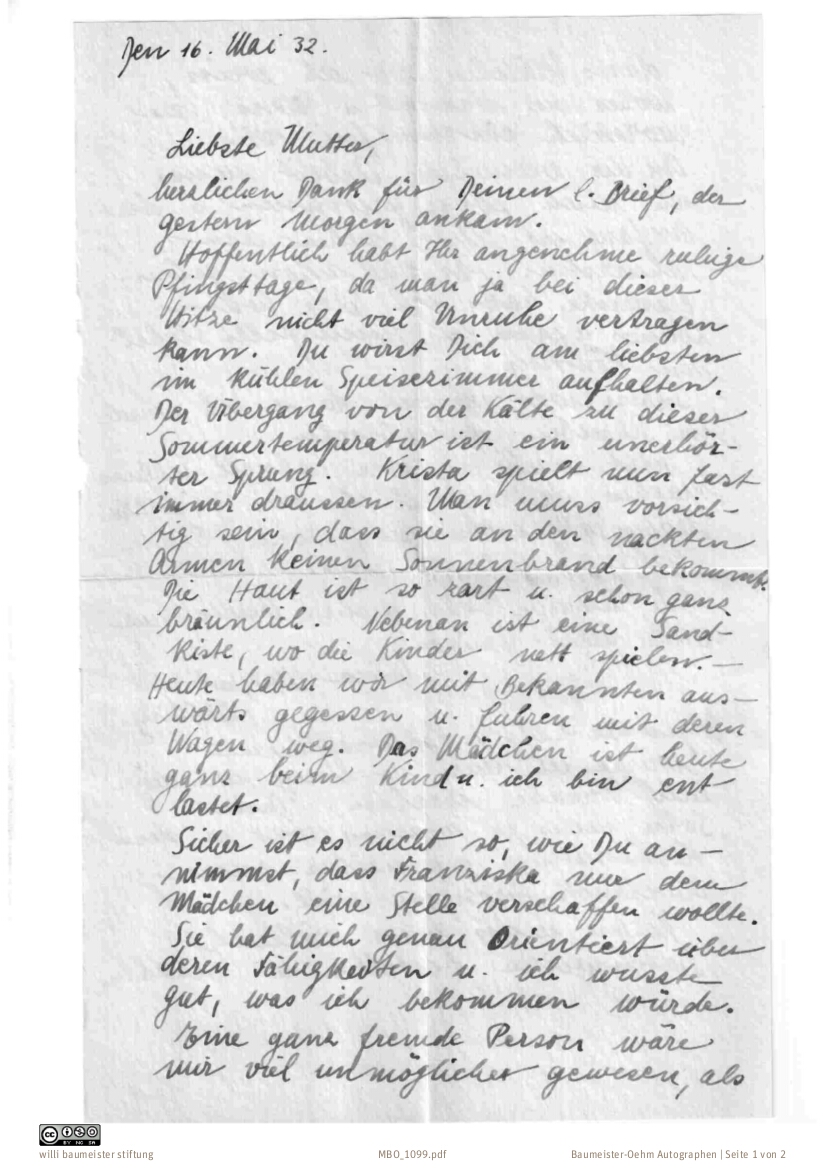 Den 16. Mai 32.
Liebste Mutter,
herzlichen Dank für Deinen l. Brief, der
gestern Morgen ankam.
Hoffentlich habt Ihr angenehme ruhige
Pfingsttage, da man ja bei dieser
Hitze nicht viel Unruhe vertragen
kann. Du wirst Dich am liebsten
im kühlen Speisezimmer aufhalten.
Der Übergang von der Kälte zu dieser
Sommertemperatur ist ein unerhör-
ter Sprung. Krista spielt nun fast
immer draussen. Man muss vorsich-
tig sein, dass sie an den nackten
Armen keinen Sonnenbrand bekommt.
Die Haut ist so zart u. schon ganz
bräunlich. Nebenan ist eine Sand-
kiste, wo die Kinder nett spielen. —
Heute haben wir mit Bekannten aus-
wärts gegessen u. fuhren mit deren
Wagen weg. Das Mädchen ist heute
ganz beim Kind u. ich bin ent
lastet.
Sicher ist es nicht so, wie Du an-
nimmst, dass Franziska nur dem
Mädchen eine Stelle verschaffen wollte.
Sie hat mich genau Orientiert über
deren Fähigkeiten u. ich wusste
gut, was ich bekommen würde.
Eine ganz fremde Person wäre
mir viel unmöglicher gewesen, als
CC BY NC SA
willi baumeister stiftung
MBO_1099.pdf
Baumeister-Oehm Autographen | Seite 1 von 2